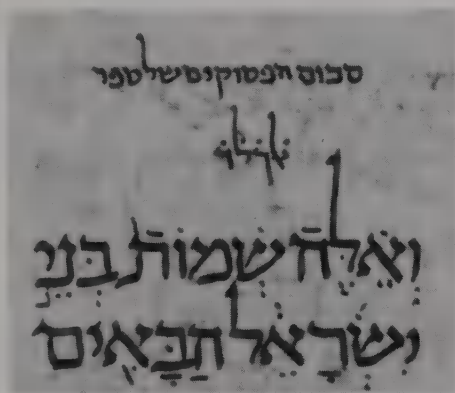 סכום הפסוקים שלספר
אׄךׄלׄדׄ
וְאֵ֗לֶּה שְׁמוֹת֙ בְּנֵ֣י
יִשְׂרָאֵ֔ל הַבָּאִ֖ים